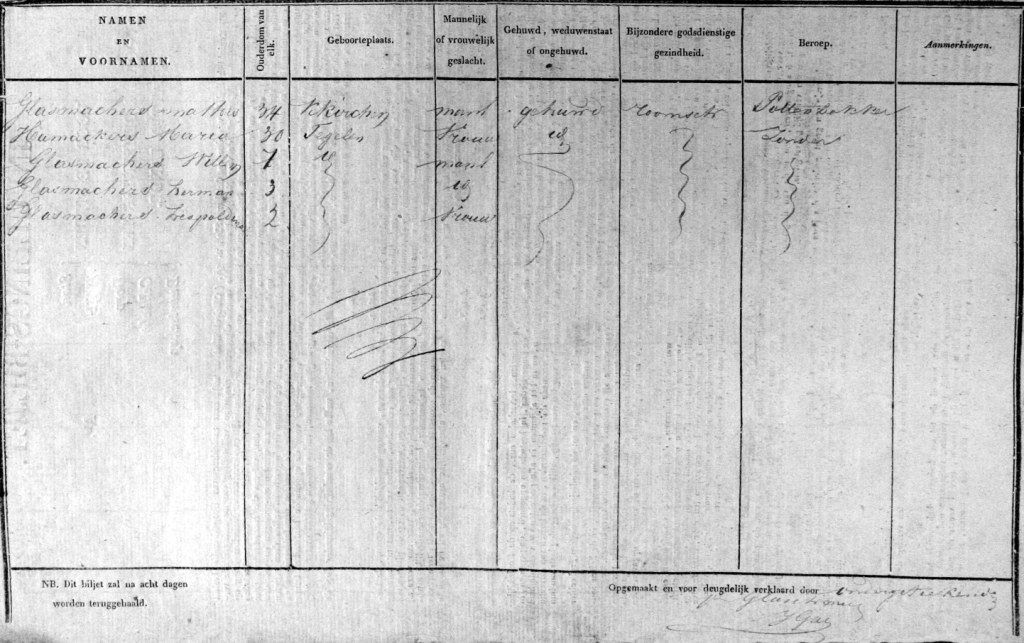 NAMEN
EN
VOORNAMEN.
Ouderdom van elk.
Geboorteplaats.
Mannelijk of vrouwelijk geslacht.
Gehuwd, weduwenstaat of ongehuwd.
Bijzondere godsdienstige gezindheid.
Beroep.
Aanmerkingen.
Glasmachers mathis 34 mans gehuwd
Hamackers Maria 30 Tegelen Vrouw id Zonder
Glasmachers Willem 1 id mans
Glasmachers herman 3 id
Glasmachers 2 Vrouw
NB. Dit biljet zal na acht dagen
worden teruggehaald.
Opgemaakt en voor deugdelijk verklaard door